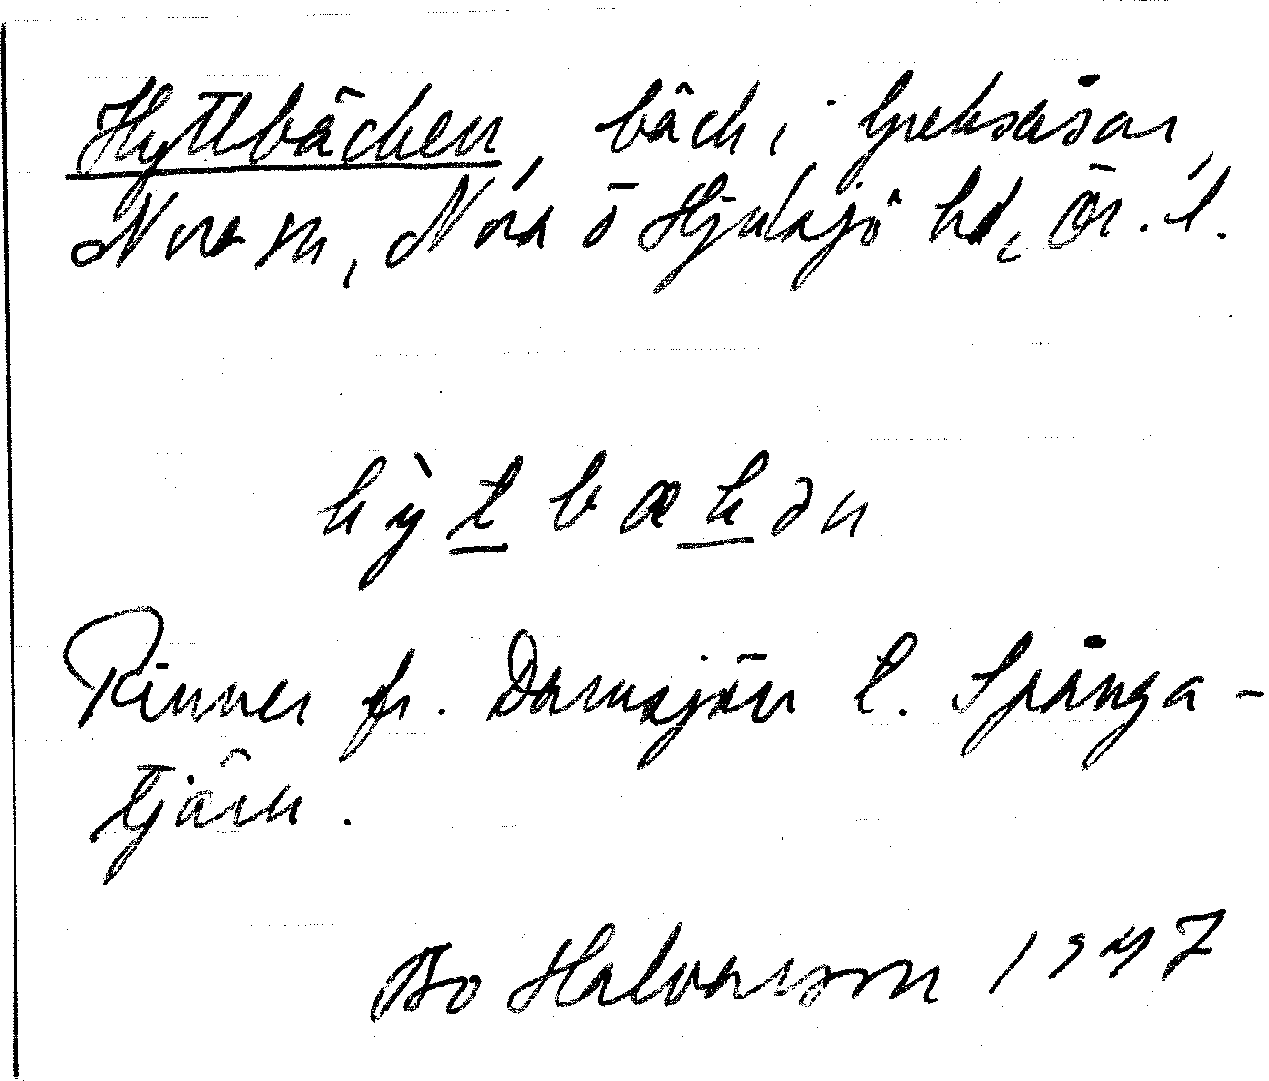 Hyttbäcken, bäck i Greksåsar,
Nora sn, Nora o Hjulsjö hd, Ör. l.
hỳt bækən
Rinner fr. Damsjön t. Spånga-
tjärn.
Bo Halvarson 1947